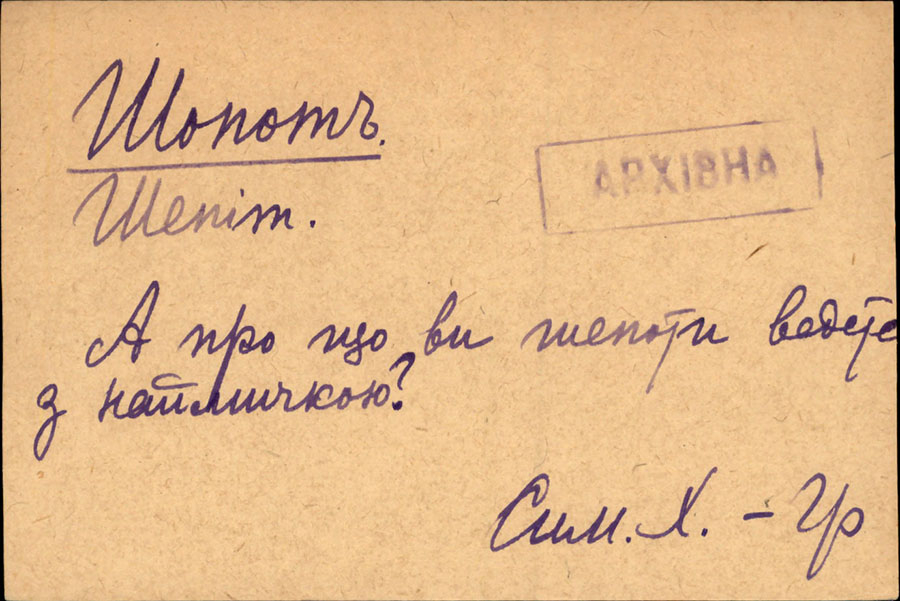 Шопотъ.
АРХІВНА
Шепіт.
А про що ви шепоти ведете
з наймичкою?
Сим. Х. – Гр